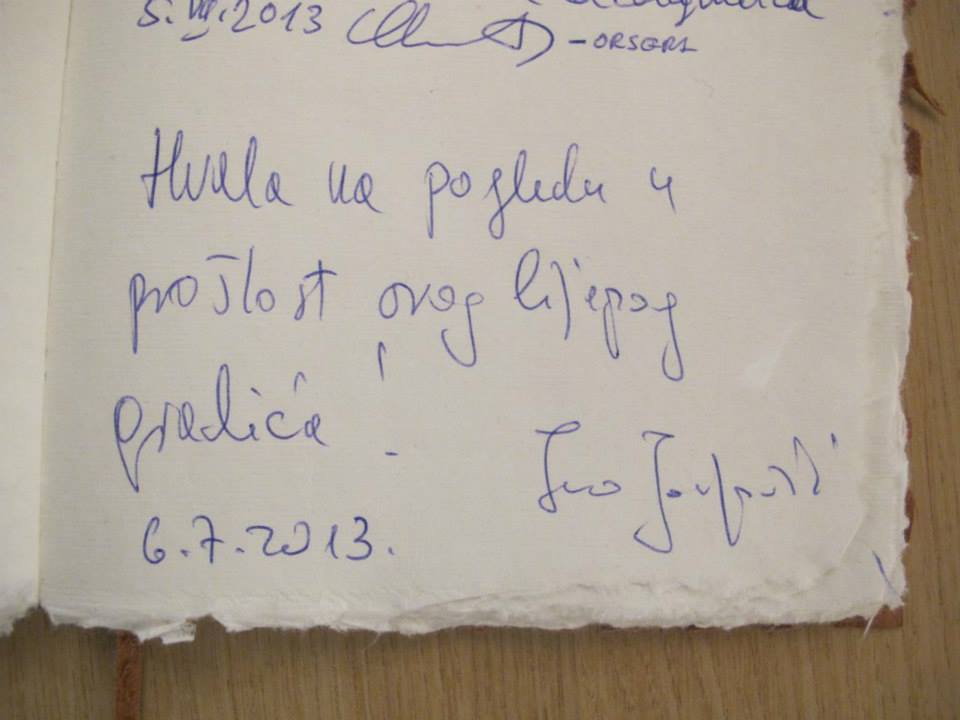 5.VII.2013 - ORSERA
Hvala na pogledu u
prošlost ovog lijepog
gradića!
Ivo Josipović
6.7.2013.